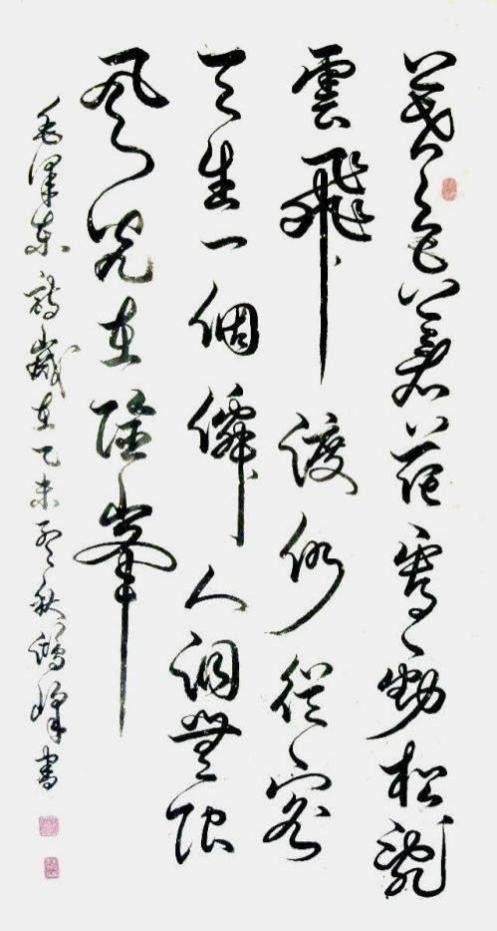 暮色蒼茫看勁松亂
雲飛渡仍從容
天生一個僊人洞無限
風光在險峯
毛澤東詩歲在乙未秋書